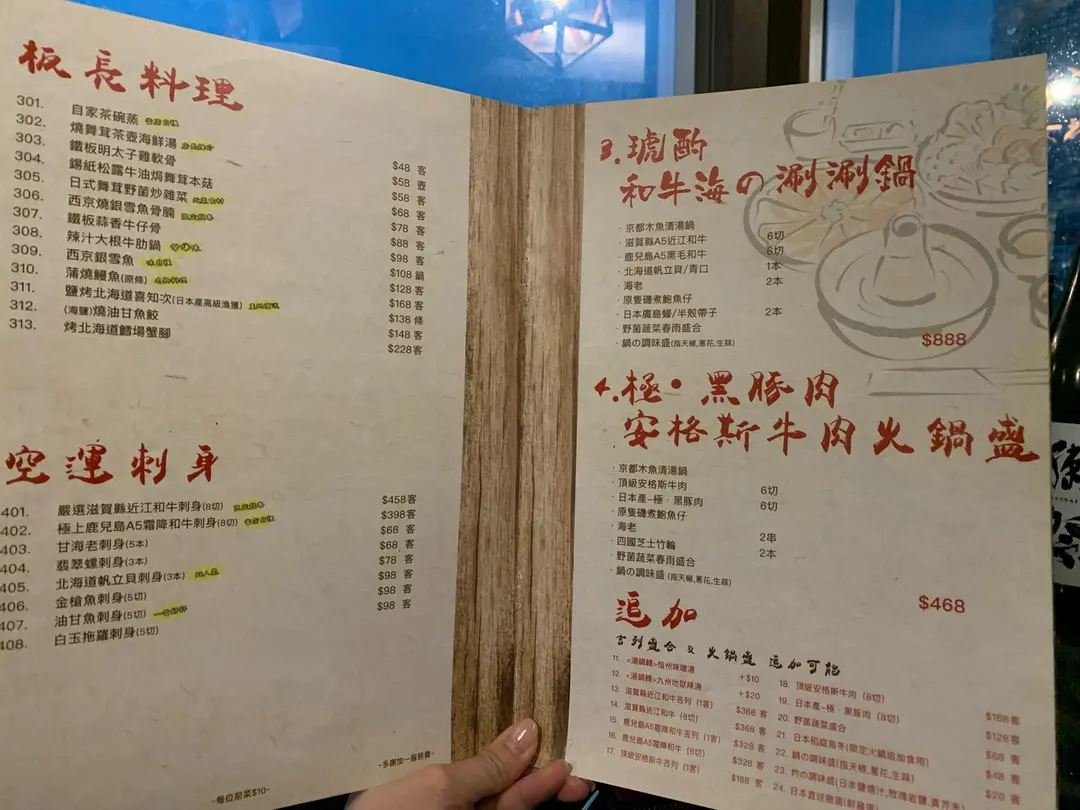 板長料理
301. 自家茶碗蒸 $48 客
302. 燒舞茸茶壺海鮮湯 $58 壺
303. 鐵板明太子雞軟骨 $58 客
304. 錫紙松露牛油焗舞茸本菇 $68 客
305. 日式舞茸野菌炒雜菜 $78 客
306. 西京燒銀雪魚骨腩 $88 客
307. 鐵板蒜香牛仔骨 $98 客
308. 辣汁大根牛肋鍋 $108 鍋
309. 西京銀雪魚 $128 客
310. 蒲燒鰻魚(原條) $168 客
311. 鹽烤北海道喜知次(日本產高級漁獲) $138 條
312. (海鹽)燒油甘魚鮫 $148 客
313. 烤北海道鱈場蟹腳 $228 客
空運刺身
401. 嚴選滋賀縣近江和牛刺身(8切) $458客
402. 極上鹿兒島A5霜降和牛刺身(8切) $398客
403. 甘海老刺身(5本) $68 客
404. 翡翠螺刺身(3本) $68 客
405. 北海道帆立貝刺身(3本) $78 客
406. 金槍魚刺身(5切) $98 客
407. 油甘魚刺身(5切) $98 客
408. 白玉拖羅刺身(5切) $98 客
-多謝加一服務費-
-每位前菜$10-
3.琥酌
和牛海の涮涮鍋
· 京都木魚清湯鍋
· 滋賀縣A5近江和牛 6切
· 鹿兒島A5黑毛和牛 6切
· 北海道帆立貝/青口 1本
· 海老 2本
· 原隻磯煮鮑魚仔
· 日本廣島蠔/半殼帶子 2本
· 野菌蔬菜春雨盛合
· 鍋の調味盛(指天椒,蔥花,生蒜)
$888
4.極·黑豚肉
安格斯牛肉火鍋盛
· 京都木魚清湯鍋
· 頂級安格斯牛肉 6切
· 日本產-極·黑豚肉 6切
· 原隻磯煮鮑魚仔
· 海老 2串
· 四國芝士竹輪 2本
· 野菌蔬菜春雨盛合
· 鍋の調味盛(指天椒,蔥花,生蒜)
$468
追加
吉列盛合 & 火鍋盛 追加可能
11. <湯鍋轉>信州味噌湯 +$10
12. <湯鍋轉>九州地獄辣湯 +$20
13. 滋賀縣近江和牛吉列 (1客) $368 客
14. 滋賀縣近江和牛 (8切) $368 客
15. 鹿兒島A5霜降和牛吉列 (1客) $328 客
16. 鹿兒島A5霜降和牛 (8切) $328 客
17. 頂級安格斯牛吉列 (1客) $188 客
18. 頂級安格斯牛肉 (8切) $188 客
19. 日本產-極·黑豚肉 (8切) $128 客
20. 野菌蔬菜盛合 $68 客
21. 日本稻庭烏冬(限定火鍋追加食用) $48 客
22. 鍋の調味盛(指天椒,蔥花,生蒜) $20 客
23. 灼の調味盛(日本鹽燒汁,玫瑰岩鹽,
24. 日本直送雞蛋